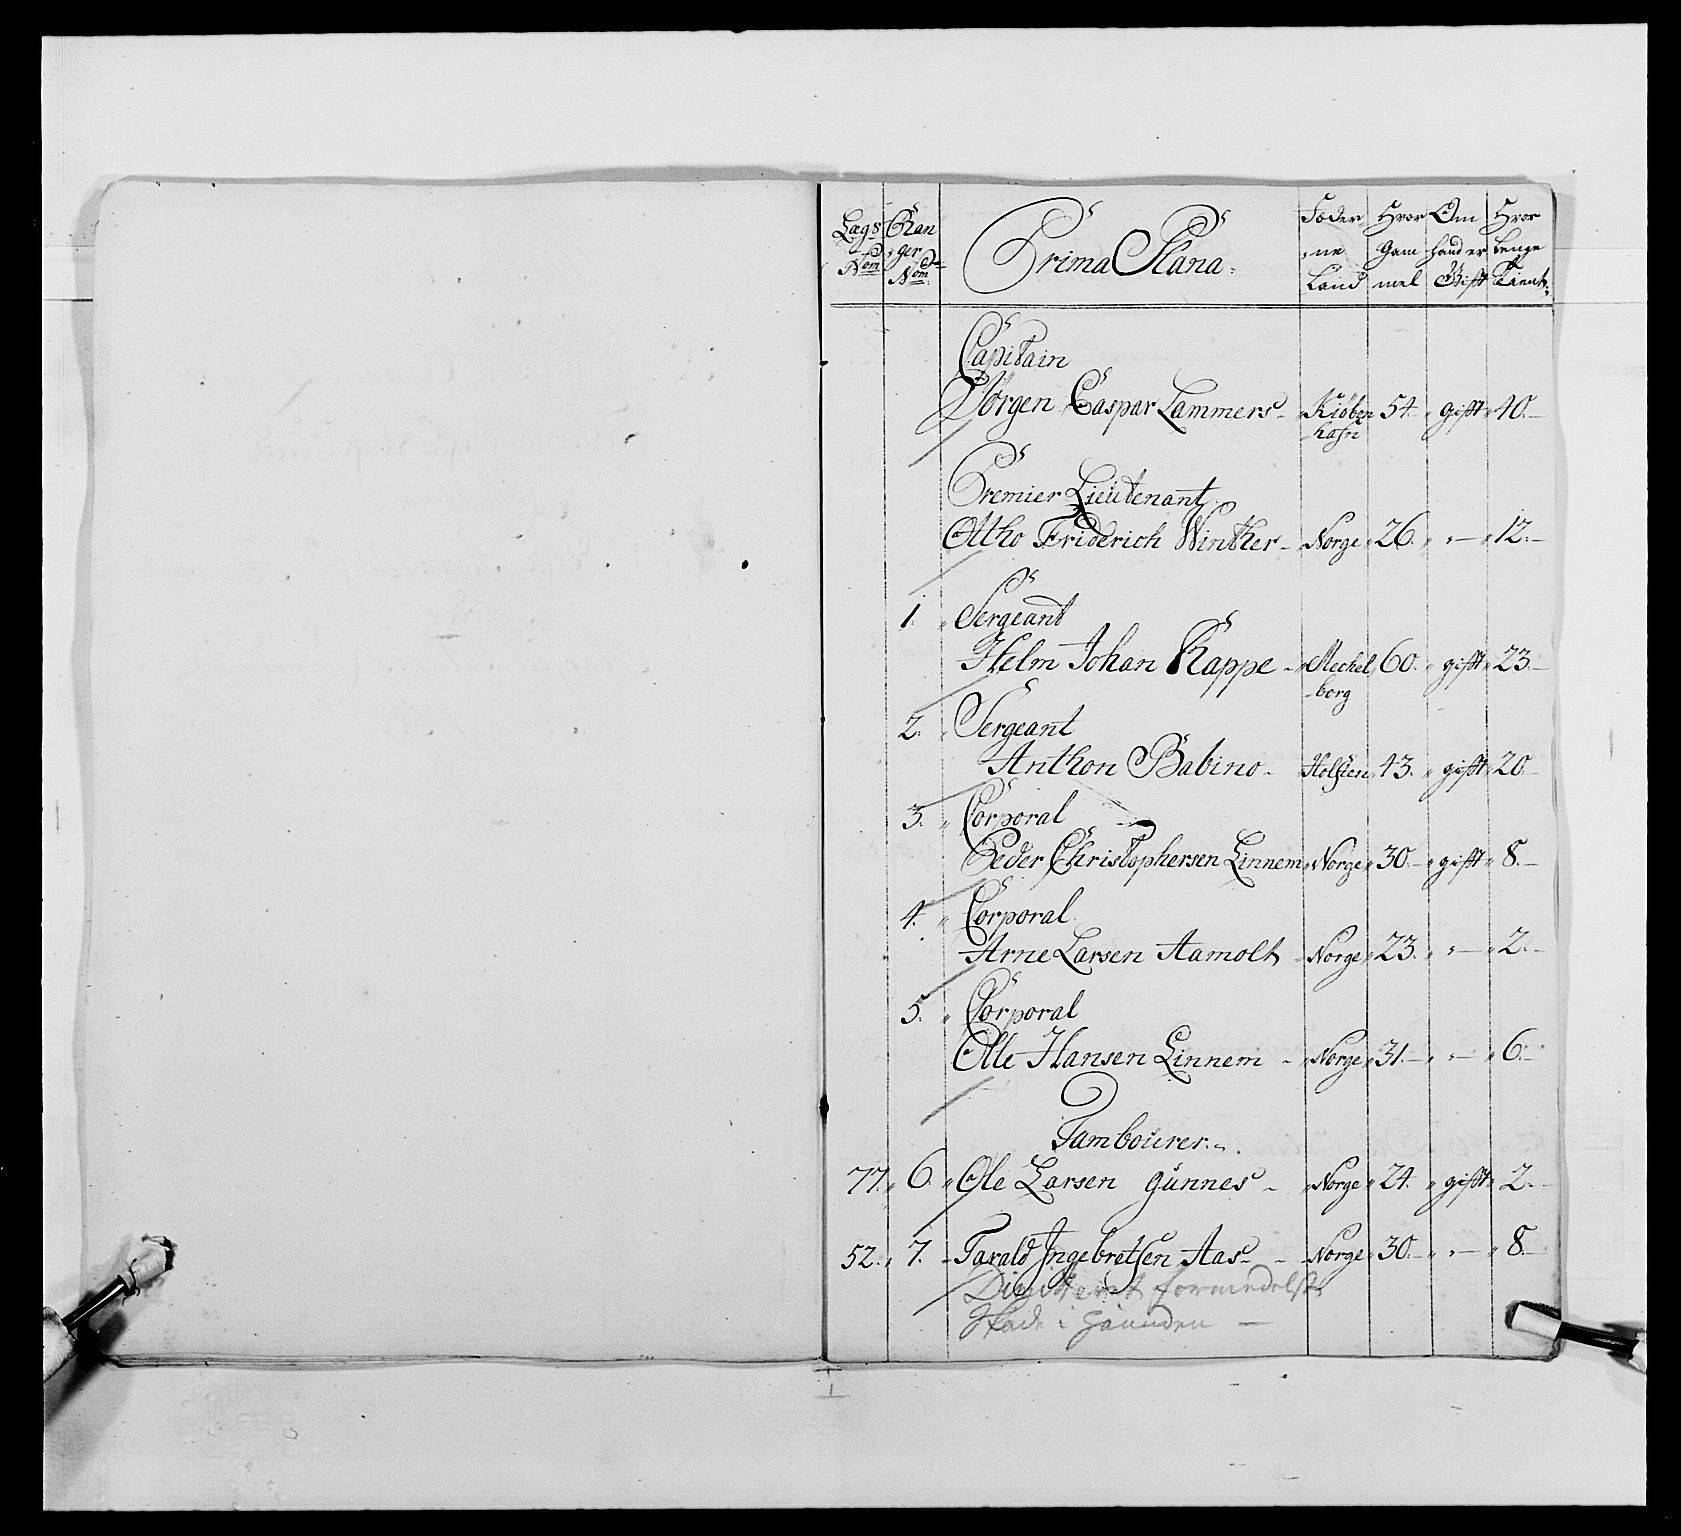 Lægs Nom
Ran ger Nom
Prima Plana
Föder ne Land
Hvor Gam mel
Om hand er Gift
Hvor lenge Tient
Capitain
Jörgen Caspar Lammers Kiöben 54. gift 40.
hafn
Premier Lieutenant
Ottho Friderich Winther Norge 26. " — 12.
1. Sergeant
Helm Johan Kappe Mechel 60. gift 23.
borg
2. Sergeant
Anthon Babino Holsten 43. gift 20.
3. Corporal
Peder Christophersen Linnem Norge 30. gift 8.
4. Corporal
Arne Larsen Aamolt Norge 23. " — 2.
5. Corporal
Olle Hansen Linnem Norge 31. " — 6.
Tambourer
77. 6. Ole Larsen Gunnes Norge 24. gift 2.
52. 7. Tarald Ingebretsen Aas Norge 30. " — 8.
formedelst
Skade i Haanden